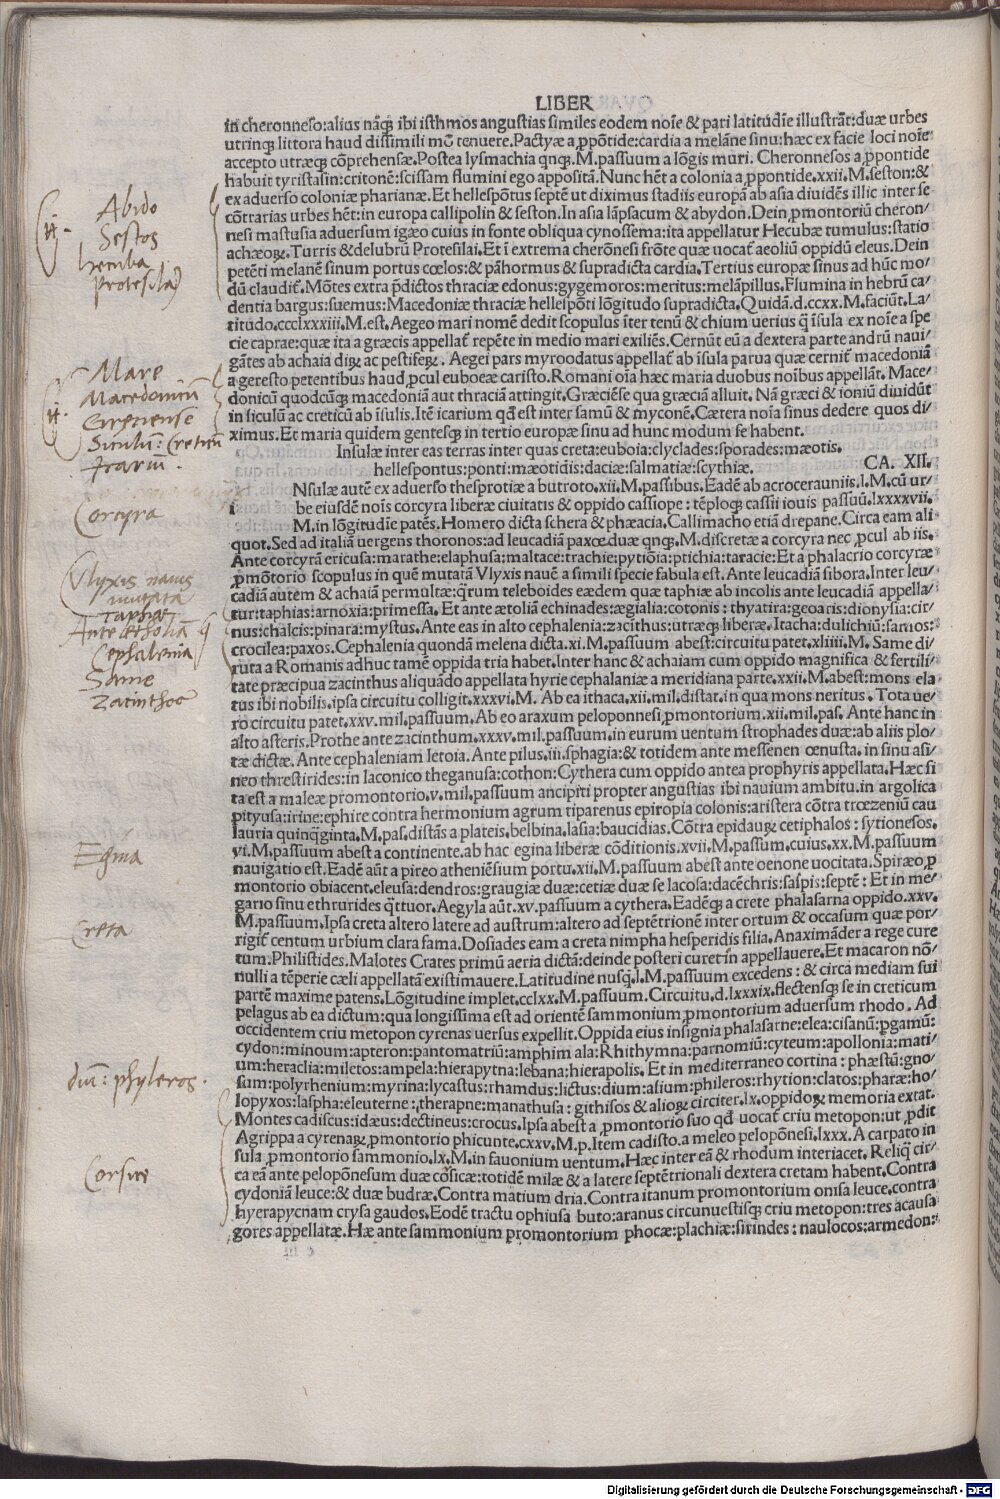 LIBER
in cheronneso:alius nãqꝫ ibi isthmos angustias similes eodem noĩe & pari latitudĩe illustrãt:duæ urbes
utrinqꝫ littora haud dissimili mõ tenuere. Pactyæ a ꝓpõtide:cardia a melãne sinu:hæc ex facie loci noĩe
accepto utræqꝫ cõprehensæ. Postea lysmachia qnqꝫ.M.passuum a lõgis muri. Cheronnesos a ꝓpontide
habuit tyristasin:critonẽ:scissam flumini ego appositã. Nunc hẽt a colonia a ꝓpontide.xxii.M.seston:&
ex aduerso coloniæ pharianæ.Et hellespõtus septẽ ut diximus stadiis europã ab asia diuidẽs illic inter se
cõtrarias urbes hẽt:in europa callipolin & seston.In asia lãpsacum & abydon.Dein ꝓmontoriũ cheron⸗
nesi mastusia aduersum igæo cuius in fonte obliqua cynossema:ita appellatur Hecubæ tumulus:statio
achæoꝝ.Turris &delubrũ Protesilai.Et ĩ extrema cherõnesi frõte quæ uocat̃ aeoliũ oppidũ eleus.Dein
petẽti melanẽ sinum portus cœlos:& pãhormus & supradicta cardia.Tertius europæ sinus ad hũc mo⸗
dũ claudit̃.Mõtes extra p̃dictos thraciæ edonus:gygemoros:meritus:melãpillus.Flumina in hebrũ ca⸗
dentia bargus:suemus:Macedoniæ thraciæ hellespõti lõgitudo supradicta.Quidã.d.ccxx.M.faciũt.La⸗
titudo.ccclxxxiii.M.est.Aegeo mari nomẽ dedit scopulus ĩter tenũ & chium uerius q̃ ĩsula ex noĩe a spe
cie caprae:quæ ita a græcis appellat̃ repẽte in medio mari exiliẽs.Cernũt eũ a dextera parte andrũ naui⸗
gãtes ab achaia diꝝ ac pestiferꝝ. Aegei pars myroodatus appellat̃ ab ĩsula parua quæ cernit̃ macedoniã
a geresto petentibus haud ꝓcul euboeæ caristo.Romani oĩa hæc maria duobus noĩbus appellãt. Mace⸗
donicũ quodcũqꝫ macedoniã aut thraciã attingit.Græciẽse qua græciã alluit. Nã græci & ioniũ diuidũt
in siculũ ac creticũ ab ĩsulis.Itẽ icarium qđ est inter samũ & myconẽ.Cætera noĩa sinus dedere quos di⸗
ximus.Et maria quidem gentesqꝫ in tertio europæ sinu ad hunc modum se habent.
Insulæ inter eas terras inter quas creta:euboia:clyclades:sporades:mæotis.
hellespontus:ponti:mæotidis:daciæ:salmatiæ:scythiæ. CA. XII.
i Nsulæ autẽ ex aduerso thesprotiæ a butroto.xii.M.passibus.Eadẽ ab acrocerauniis.l.M.cũ ur⸗
be eiusdẽ noĩs corcyra liberæ ciuitatis & oppido cassiope:tẽploqꝫ cassii iouis passuũ.lxxxxvii.
M.in lõgitudĩe patẽs.Homero dicta schera & phæacia.Callimacho etiã drepane.Circa eam ali
quot.Sed ad italiã uergens thoronos:ad leucadiã paxoe duæ qnqꝫ.M.discretæ a corcyra nec ꝓcul ab iis.
Ante corcyrã ericusa:marathe:elaphusa:maltace:trachie:pytiõia:ptichia:taracie:Et a phalacrio corcyræ
ꝓmõtorio scopulus in quẽ mutatã Vlyxis nauẽ a simili specie fabula est.Ante leucadiã sibora.Inter leu⸗
cadiã autem & achaiã permultæ:q̃rum teleboides eædem quæ taphiæ ab incolis ante leucadiã appella⸗
tur:taphias:arnoxia:primessa.Et ante ætoliã echinades:ægialia:cotonis:thyatira:geoaris:dionysia:cir⸗
nus:chalcis:pinara:mystus.Ante eas in alto cephalenia:zacithus:utræqꝫ liberæ.Itacha:dulichiũ:samos:
crocilea:paxos.Cephalenia quondã melena dicta.xi.M.passuum abest:circuitu patet.xliiii.M.Same di⸗
ruta a Romanis adhuc tamẽ oppida tria habet.Inter hanc & achaiam cum oppido magnifica & fertili⸗
tate præcipua zacinthus aliquãdo appellata hyrie cephalaniæ a meridiana parte.xxii.M.abest:mons ela
tus ibi nobilis.ipsa circuitu colligit.xxxvi.M. Ab ea ithaca.xii.mil.distat.in qua mons neritus. Tota ue⸗
ro circuitu patet.xxv.mil.passuum.Ab eo araxum peloponnesi ꝓmontorium.xii.mil.pas. Ante hanc in
alto asteris.Prothe ante zacinthum.xxxv.mil.passuum.in eurum uentum strophades duæ:ab aliis plo⸗
tæ dictæ.Ante cephaleniam letoia.Ante pilus.iii.sphagia:& totidem ante messenen œnusta.in sinu asi⸗
neo threstirides:in laconico theganusa:cothon:Cythera cum oppido antea prophyris appellata.Hæc si
ta est a maleæ promontorio.v.mil.passuum ancipiti propter angustias ibi nauium ambitu.in argolica
pityusa:irine:ephire contra hermonium agrum tiparenus epiropia colonis:aristera cõtra trœzeniũ cau
lauria quinq̃ginta.M.pas.distãs a plateis.belbina.lasia:baucidias.Cõtra epidauꝝ cetiphalos:sytionesos.
vi.M.passuum abest a continente.ab hac egina liberæ cõditionis.xvii.M.passum.cuius.xx.M.passuum
nauigatio est.Eadẽ aũt a pireo atheniẽsium portu.xii.M.passuum abest ante oenone uocitata.Spiræo ꝓ
montorio obiacent.eleusa:dendros:graugiæ duæ:cetiæ duæ se lacosa:dacẽchris:saspis:septẽ: Et in me⸗
gario sinu ethrurides q̃ttuor.Aegyla aũt.xv.passuum a cythera.Eadẽqꝫ a crete phalasarna oppido.xxv.
M.passuum.Ipsa creta altero latere ad austrum:altero ad septẽtrionẽ inter ortum & occasum quæ por⸗
rigit̃ centum urbium clara fama.Dosiades eam a creta nimpha hesperidis filia.Anaximãder a rege cure
tum.Philistides.Malotes Crates primũ aeria dictã:deinde posteri curetĩn appellauere.Et macaron nõ⸗
nulli a tẽperie cæli appellatã existimauere.Latitudine nusq̃.l.M.passuum excedens: & circa mediam sui
partẽ maxime patens.Lõgitudine implet.cclxx.M.passuum.Circuitu.d.lxxxix.flectensqꝫ se in creticum
pelagus ab ea dictum:qua longissima est ad orientẽ sammonium ꝓmontorium aduersum rhodo. Ad
occidentem criu metopon cyrenas uersus expellit.Oppida eius insignia phalasarne:elea:cisanũ:ꝑgamũ:
cydon:minoum:apteron:pantomatriũ:amphim ala:Rhithymna:parnomiũ:cyteum:apollonia:mati⸗
um:heraclia:miletos:ampela:hierapytna:lebana:hierapolis. Et in mediterraneo cortina: phæstũ:gno⸗
sum:polyrhenium:myrina:lycastus:rhamdus:lictus:dium:asium:phileros:rhytion:clatos:pharæ:ho⸗
lopyxos:laspha:eleuterne:therapne:manathusa:githisos & alioꝝ circiter.lx.oppidoꝝ memoria extat.
Montes cadiscus:idæus:dectineus:crocus.Ipsa abest a ꝓmontorio suo qđ uocat̃ criu metopon:ut ꝓdit
Agrippa a cyrenaꝝ ꝓmontorio phicunte.cxxv.M.p.Item cadisto.a meleo pelopõnesi.lxxx.A carpato in
sula ꝓmontorio sammonio.lx.M.in fauonium uentum.Hæc inter eã & rhodum interiacet. Reliq̃ cir⸗
ca eã ante pelopõnesum duæ cosicæ:totidẽ milæ & a latere septẽtrionali dextera cretam habent.Contra
cydoniã leuce:& duæ budræ.Contra matium dria.Contra itanum promontorium onisa leuce.contra
hyerapycnam crysa gaudos.Eodẽ tractu ophiusa buto:aranus circunuestisqꝫ criu metopon:tres acausa
gores appellatæ.Hæ ante sammonium promontorium phocæ:plachiæ:sirindes:naulocos:armedon:
Abido
Sestos
hecuba
Protesila
Mare
Macedonicũ
Greciense
Siculũ: Creticũ
Icariũ.
Corcyra
Vlyxis nauis
mutata
Taphiæ
Ante ætholiã
Cephalenia
Same
Zacinthos
Egina
Creta
diũ: phyleros.
Corsice
Digitalisierung gefördert durch die Deutsche Forschungsgemeinschaft - DFG